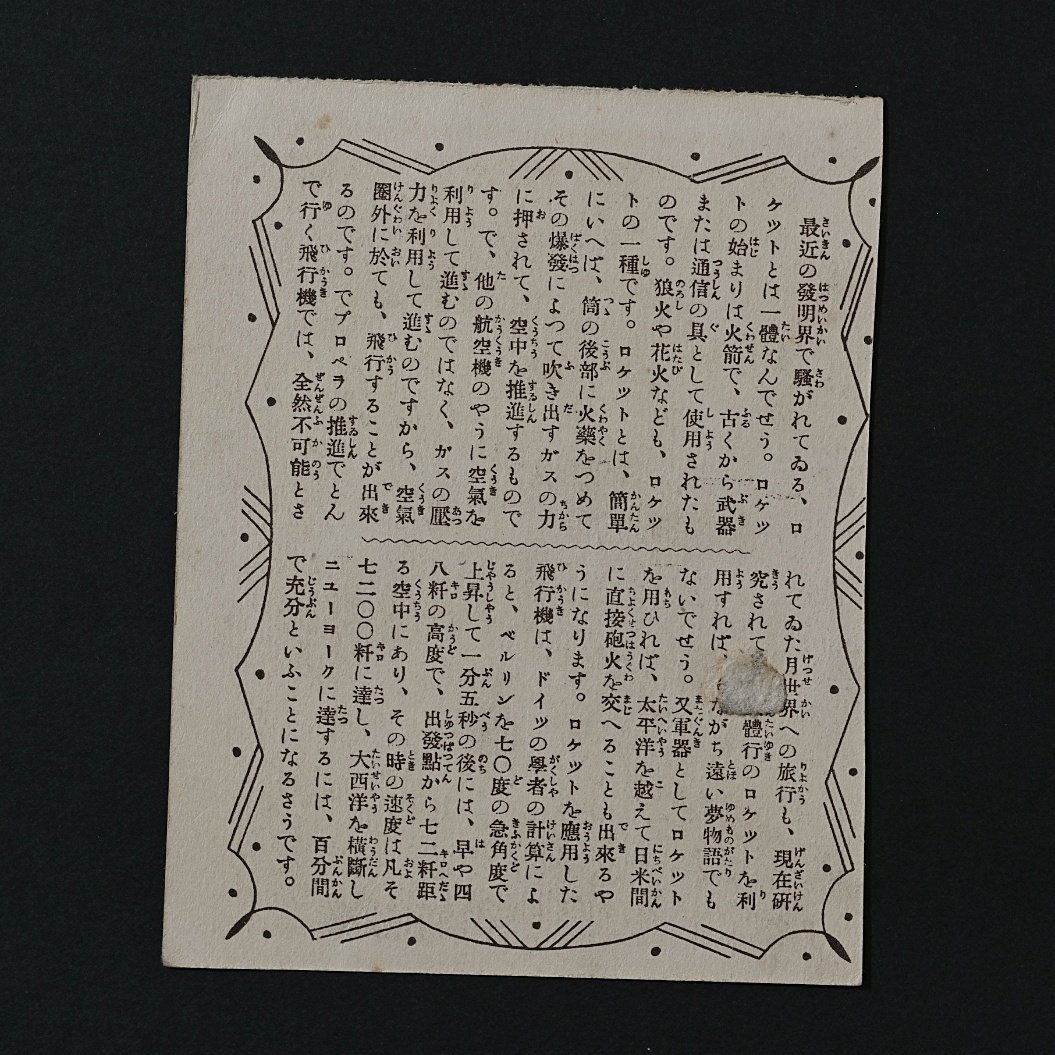 最近の發明界で騷がれてゐる、ロ
ケットとは一體なんでせう。ロケッ
トの始まりは火箭で、古くから武器
または通信の具として使用されたも
のです。狼火や花火なども、ロケッ
トの一種です。ロケットとは、簡單
にいへば、筒の後部に火藥をつめて
その爆發によつて吹き出すガスの力
に押されて、空中を推進するもので
す。で、他の航空機のやうに空氣を
利用して進むのではなく、ガスの壓
力を利用して進むのですから、空氣
圈外に於ても、飛行することが出來
るのです。でプロペラの推進でとん
で行く飛行機では、全然不可能とさ
れてゐた月世界への旅行も、現在研
究されて
體行のロケットを利
用すれば、
ながち遠い夢物語でも
ないでせう。又軍器としてロケット
を用ひれば、太平洋を越えて日米間
に直接砲火を交へることも出來るや
うになります。ロケットを應用した
飛行機は、ドイツの學者の計算によ
ると、ベルリンを七〇度の急角度で
上昇して一分五秒の後には、早や四
八粁の高度で、出發點から七二粁距
る空中にあり、その時の速度は凡そ
七二〇〇粁に達し、大西洋を横斷し
ニューヨークに達するには、百分間
で充分といふことになるさうです。